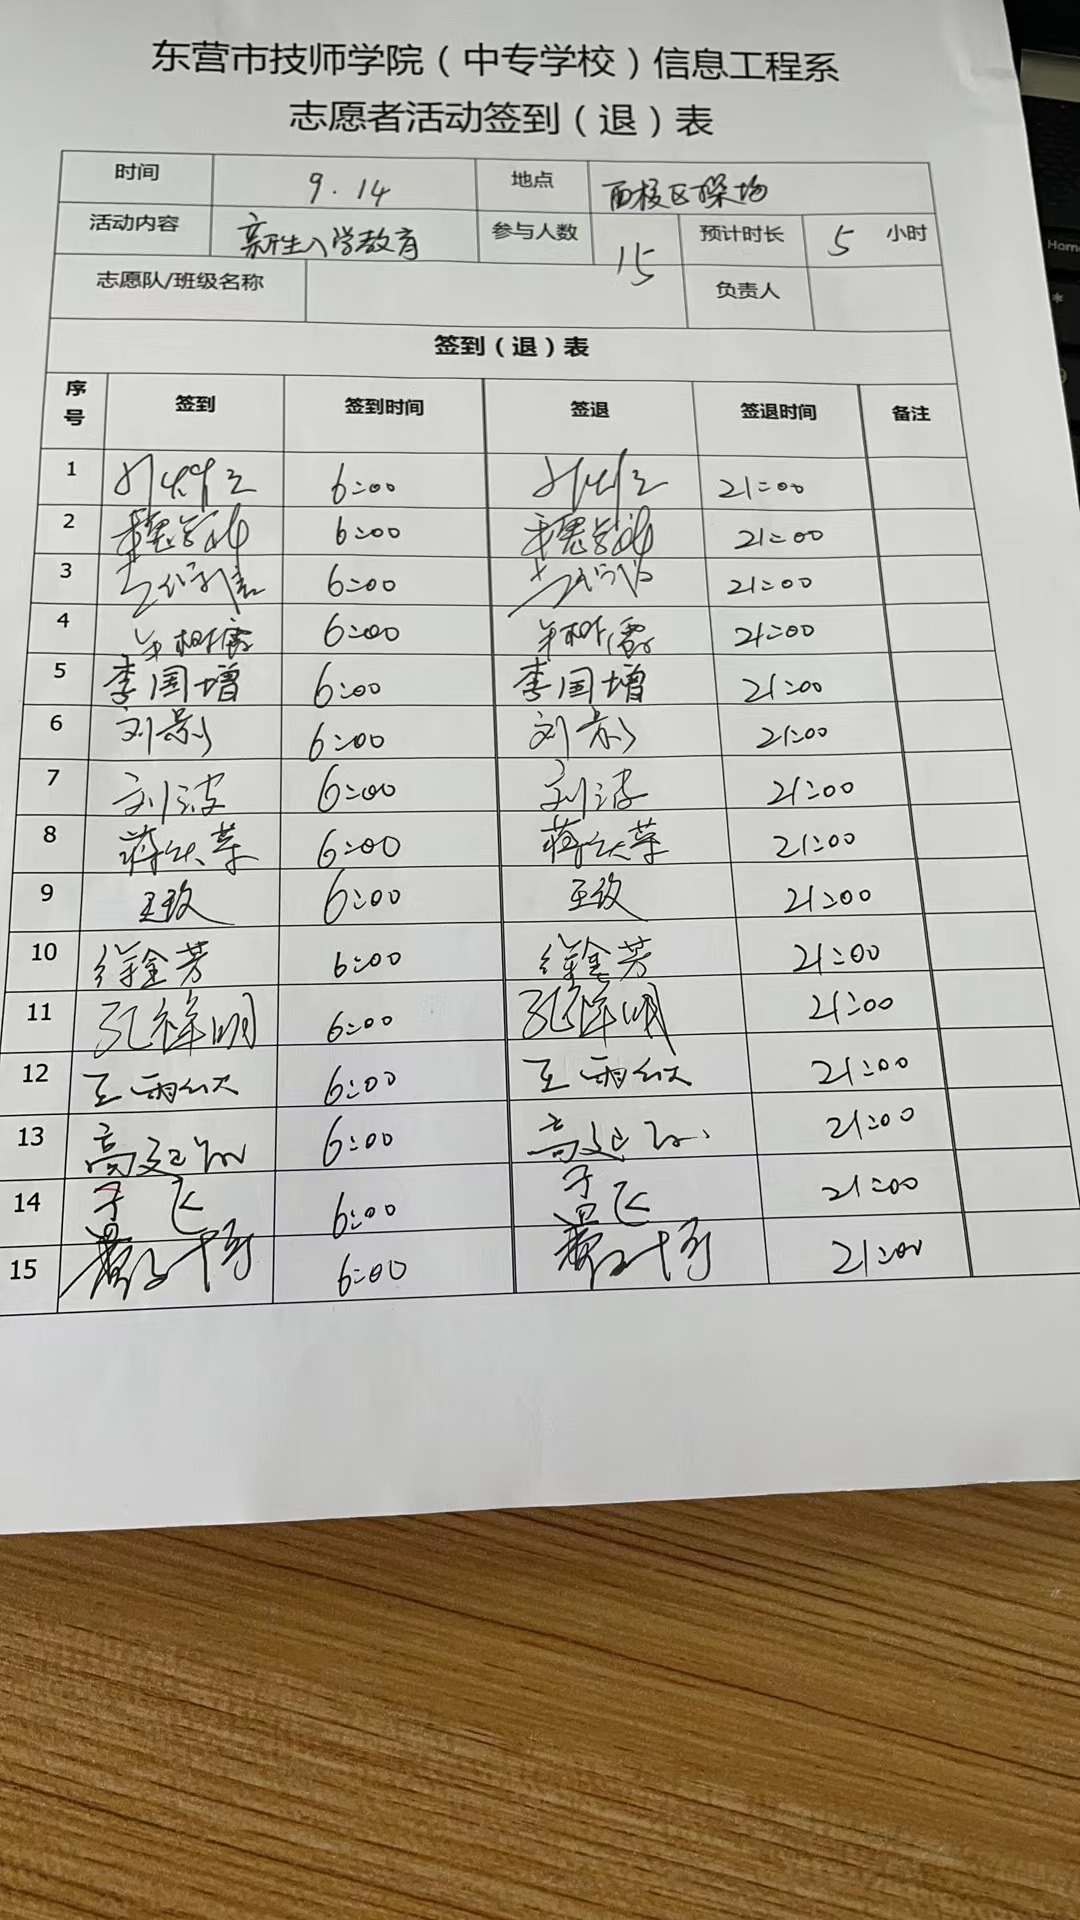 东营市技师学院（中专学校）信息工程系
志愿者活动签到（退）表
时间 9.14 地点 西校区操场
活动内容 新生入学教育 参与人数 15 预计时长 5 小时
志愿队/班级名称 负责人
签到（退）表
序号 签到 签到时间 签退 签退时间 备注
1 6:00 21:00
2 6:00 21:00
3 6:00 21:00
4 6:00 21:00
5 李国增 6:00 李国增 21:00
6 刘影 6:00 刘影 21:00
7 刘波 6:00 刘波 21:00
8 6:00 21:00
9 王玫 6:00 王玫 21:00
10 徐金芳 6:00 徐金芳 21:00
11 孔祥明 6:00 孔祥明 21:00
12 王雨欣 6:00 王雨欣 21:00
13 6:00 21:00
14 于飞 6:00 于飞 21:00
15 6:00 21:00
Home